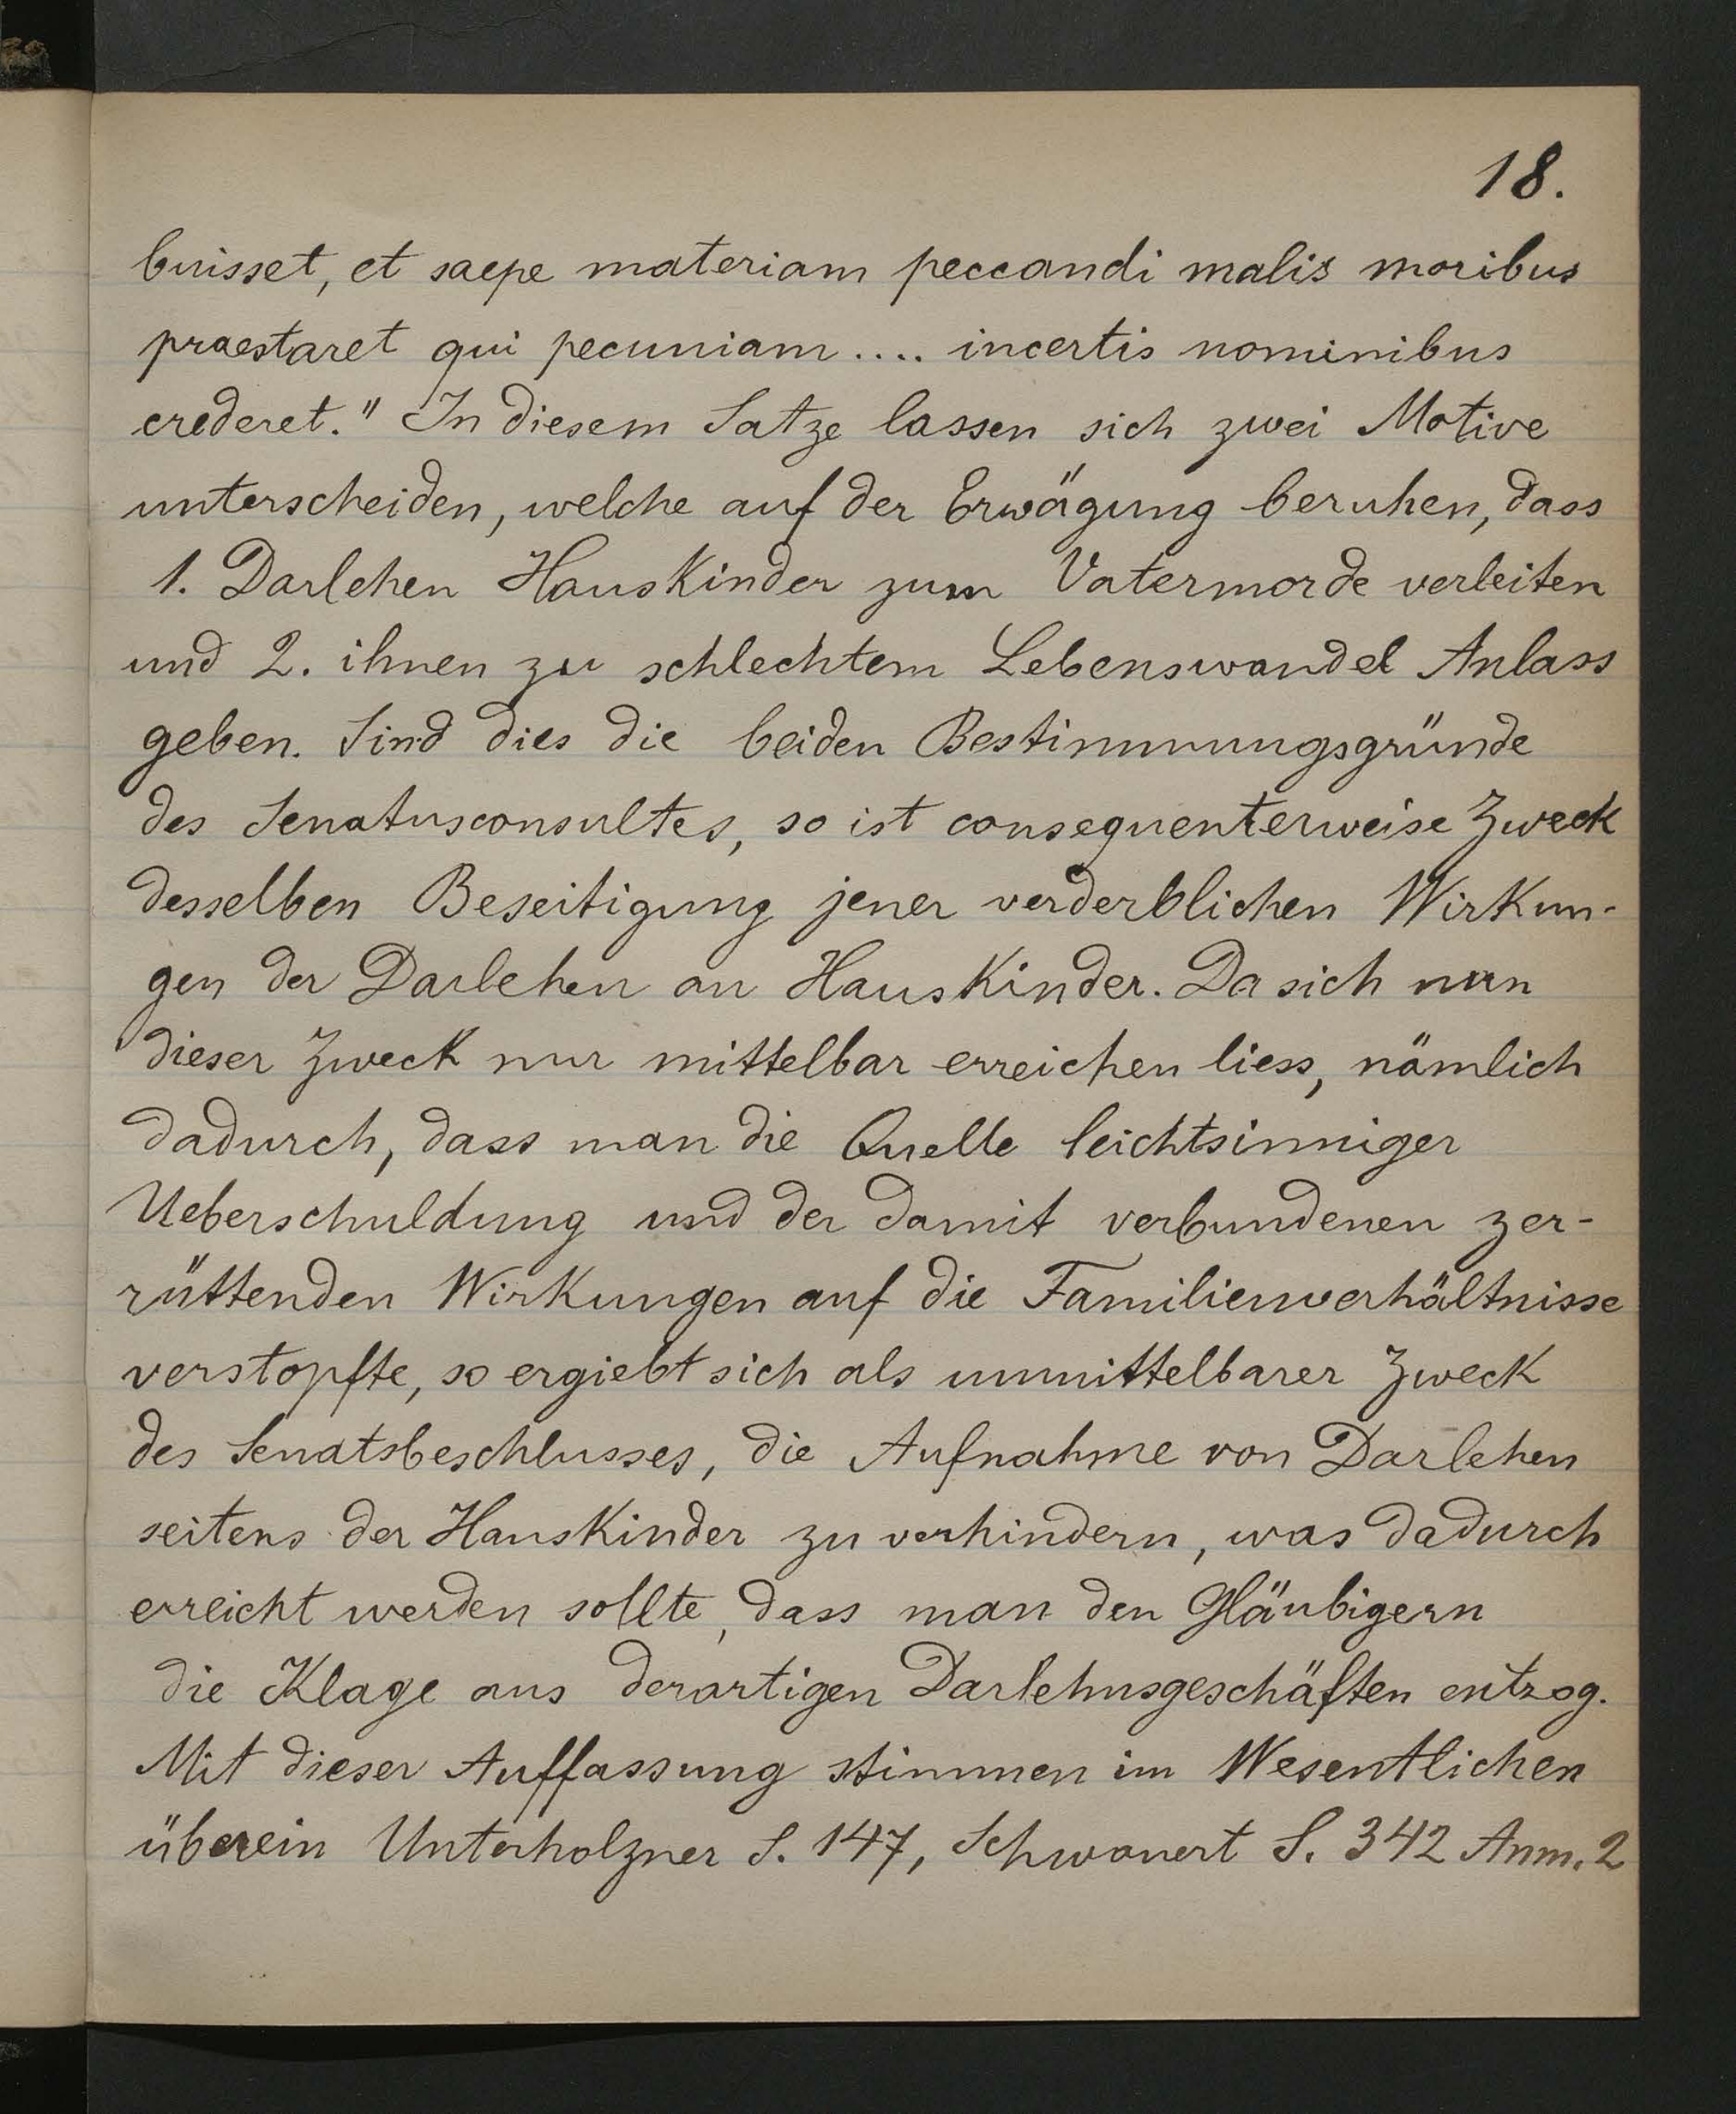 18.
buisset, et saepe materiam peccandi malis moribus
praestaret qui pecuniam .... incertis nominibus
crederet." In diesem Satze lassen sich zwei Motive
unterscheiden, welche auf der Erwägung beruhen, dass
1. Darlehen Hauskinder zum Vatermorde verleiten
und 2. ihnen zu schlechtem Lebenswandel Anlass
geben. Sind dies die beiden Bestimmungsgründe
des Senatusconsultes, so ist consequenterweise Zweck
desselben Beseitigung jener verderblichen Wirkun-
gen der Darlehen an Hauskinder. Da sich nun
dieser Zweck nur mittelbar erreichen liess, nämlich
dadurch, dass man die Quelle leichtsinniger
Ueberschuldung und der damit verbundenen zer-
rüttenden Wirkungen auf die Familienverhältnisse
verstopfte, so ergiebt sich als unmittelbarer Zweck
des Senatsbeschlusses, die Aufnahme von Darlehen
seitens der Hauskinder zu verhindern, was dadurch
erreicht werden sollte, dass man den Gläubigern
die Klage aus derartigen Darlehnsgeschäften entzog.
Mit dieser Auffassung stimmen im Wesentlichen
überein Unterholzner S. 147, Schwanert S. 342 Anm. 2